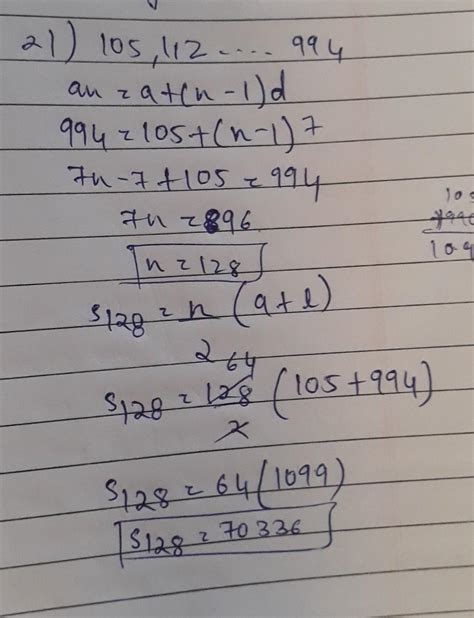 21) 105, 112 .... 994
an = a+(n-1)d
994 = 105+(n-1)7
7n-7+105 = 994
7n = 896
n = 128
S128 = n (a+l)
2
64
S128 = 128 (105+994)
2
S128 = 64(1099)
S128 = 70336